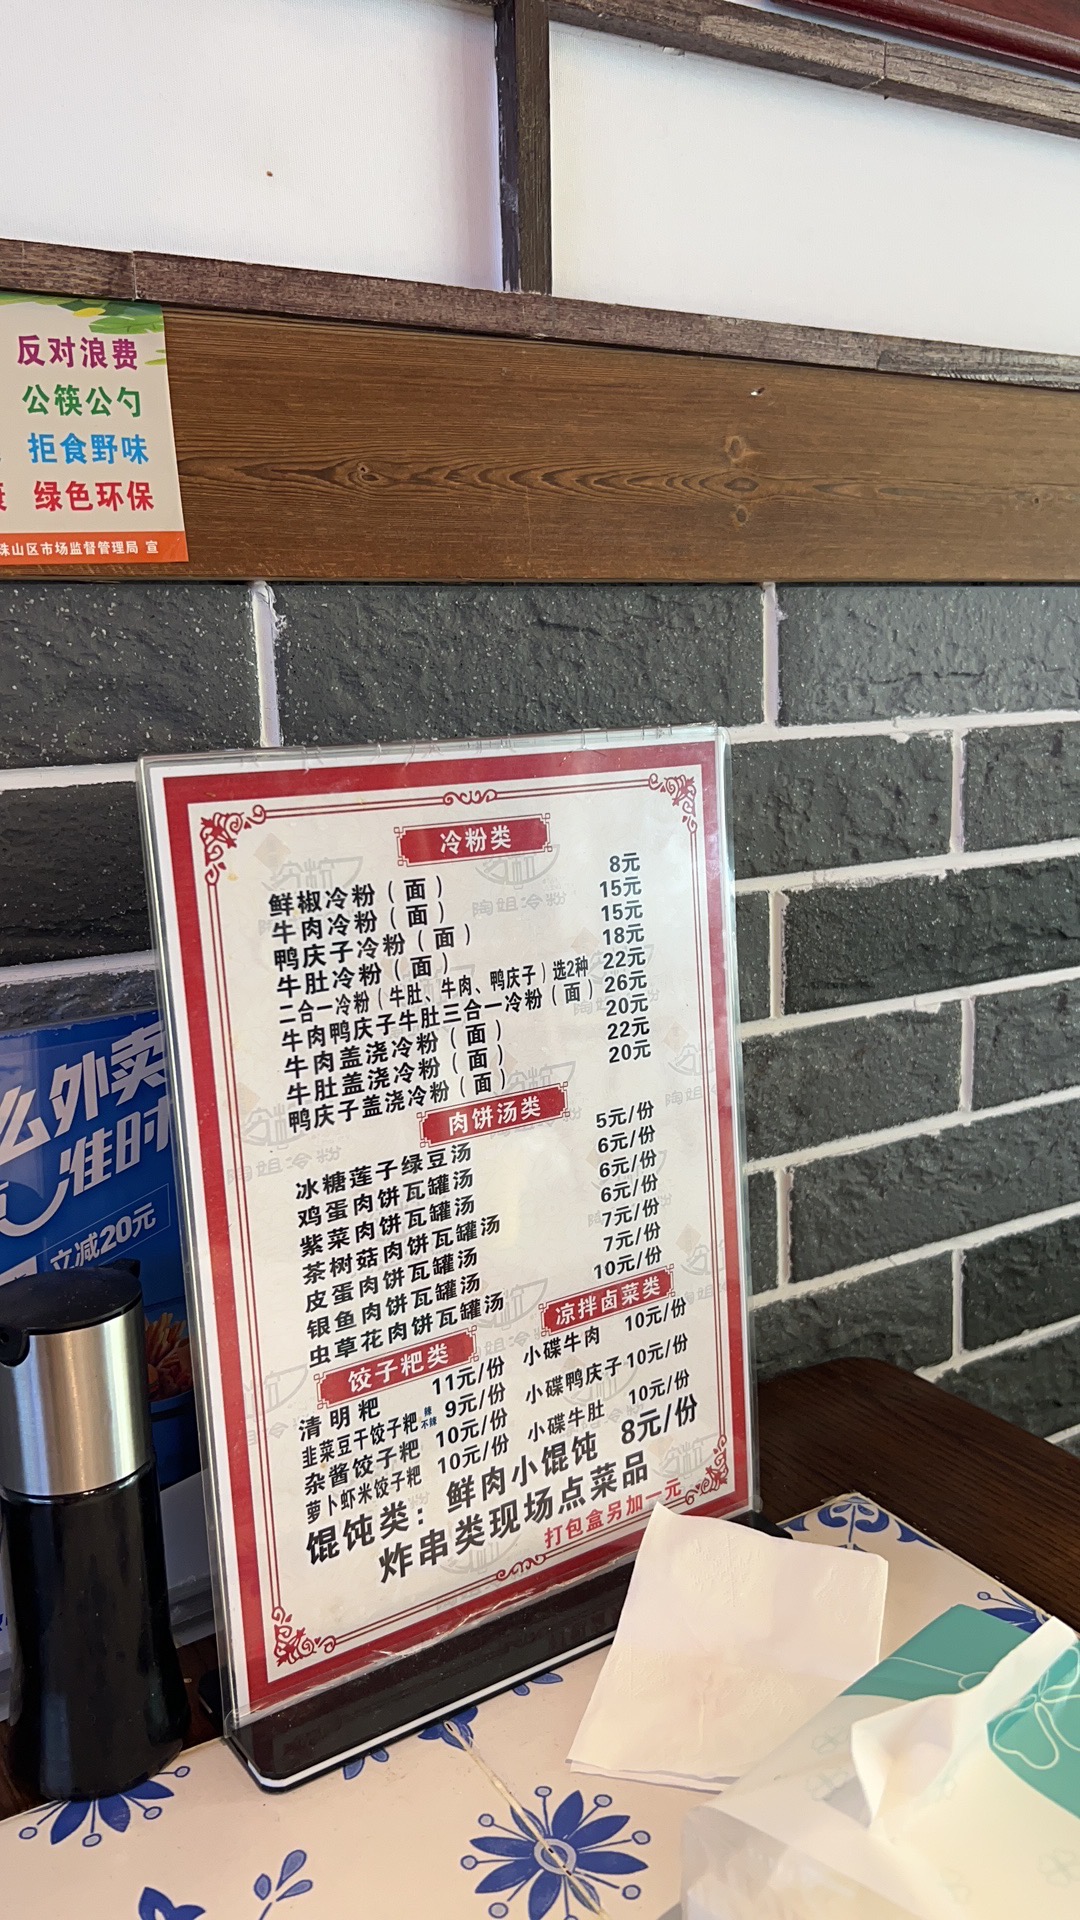 反对浪费
公筷公勺
拒食野味
绿色环保
珠山区市场监督管理局 宣
冷粉类
鲜椒冷粉（面） 8元
牛肉冷粉（面） 15元
鸭庆子冷粉（面） 15元
牛肚冷粉（面） 18元
二合一冷粉（牛肚、牛肉、鸭庆子）选2种 22元
牛肉鸭庆子牛肚三合一冷粉（面） 26元
牛肉盖浇冷粉（面） 20元
牛肚盖浇冷粉（面） 22元
鸭庆子盖浇冷粉（面） 20元
肉饼汤类
冰糖莲子绿豆汤 5元/份
鸡蛋肉饼瓦罐汤 6元/份
紫菜肉饼瓦罐汤 6元/份
茶树菇肉饼瓦罐汤 6元/份
皮蛋肉饼瓦罐汤 7元/份
银鱼肉饼瓦罐汤 7元/份
虫草花肉饼瓦罐汤 10元/份
饺子粑类
清明粑 11元/份
韭菜豆干饺子粑 辣 不辣 9元/份
杂酱饺子粑 10元/份
萝卜虾米饺子粑 10元/份
凉拌卤菜类
小碟牛肉 10元/份
小碟鸭庆子 10元/份
小碟牛肚 10元/份
馄饨类：鲜肉小馄饨 8元/份
炸串类现场点菜品
打包盒另加一元
陶姐冷粉
么外卖
准时
立减20元